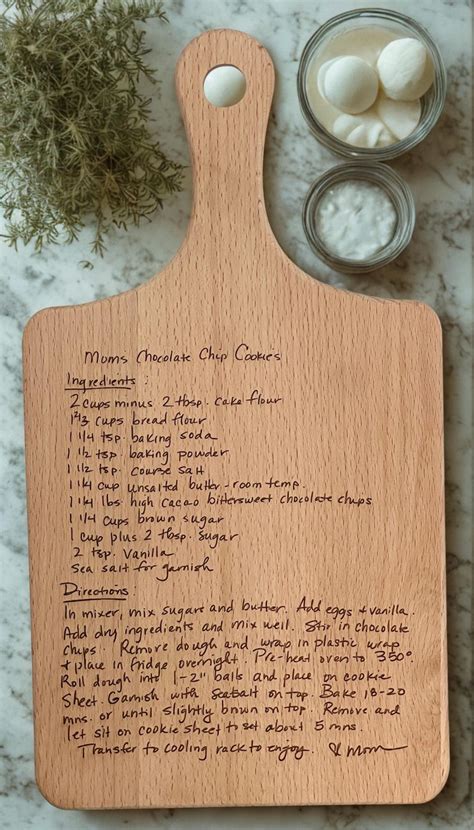 Moms Chocolate Chip Cookies
Ingredients:
2 cups minus 2 tbsp. cake flour
1 2/3 cups bread flour
1 1/4 tsp. baking soda
1 1/2 tsp. baking powder
1 1/2 tsp. course salt
1 1/4 cup unsalted butter - room temp.
1 1/4 lbs high cacao bittersweet chocolate chips
1 1/4 cups brown sugar
1 cup plus 2 tbsp. sugar
2 tsp. vanilla
Sea salt for garnish
Directions
In mixer, mix sugars and butter. Add eggs + vanilla.
Add dry ingredients and mix well. Stir in chocolate
chips. Remove dough and wrap in plastic wrap
+ place in fridge overnight. Pre-heat oven to 350°.
Roll dough into 1-2" balls and place on cookie
sheet. Garnish with seasalt on top. Bake 18-20
mns. or until slightly brown on top. Remove and
let sit on cookie sheet to set about 5 mns.
Transfer to cooling rack to enjoy. Mom